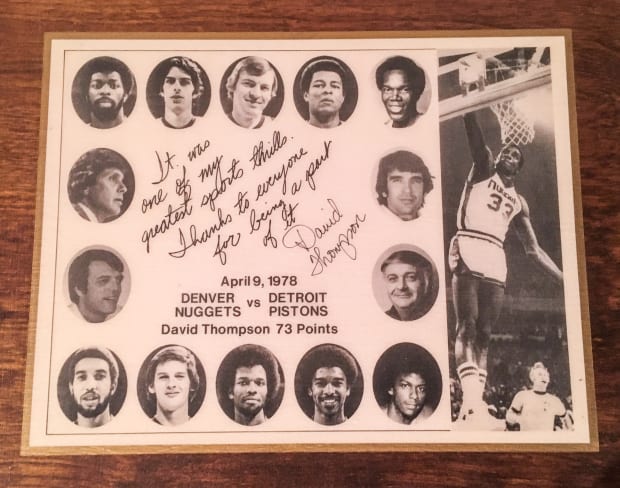 It was
one of my
greatest sports thrills.
Thanks to everyone
for being a part
of it
David
Thompson
April 9, 1978
DENVER NUGGETS vs DETROIT PISTONS
David Thompson 73 Points
NUGGETS
33